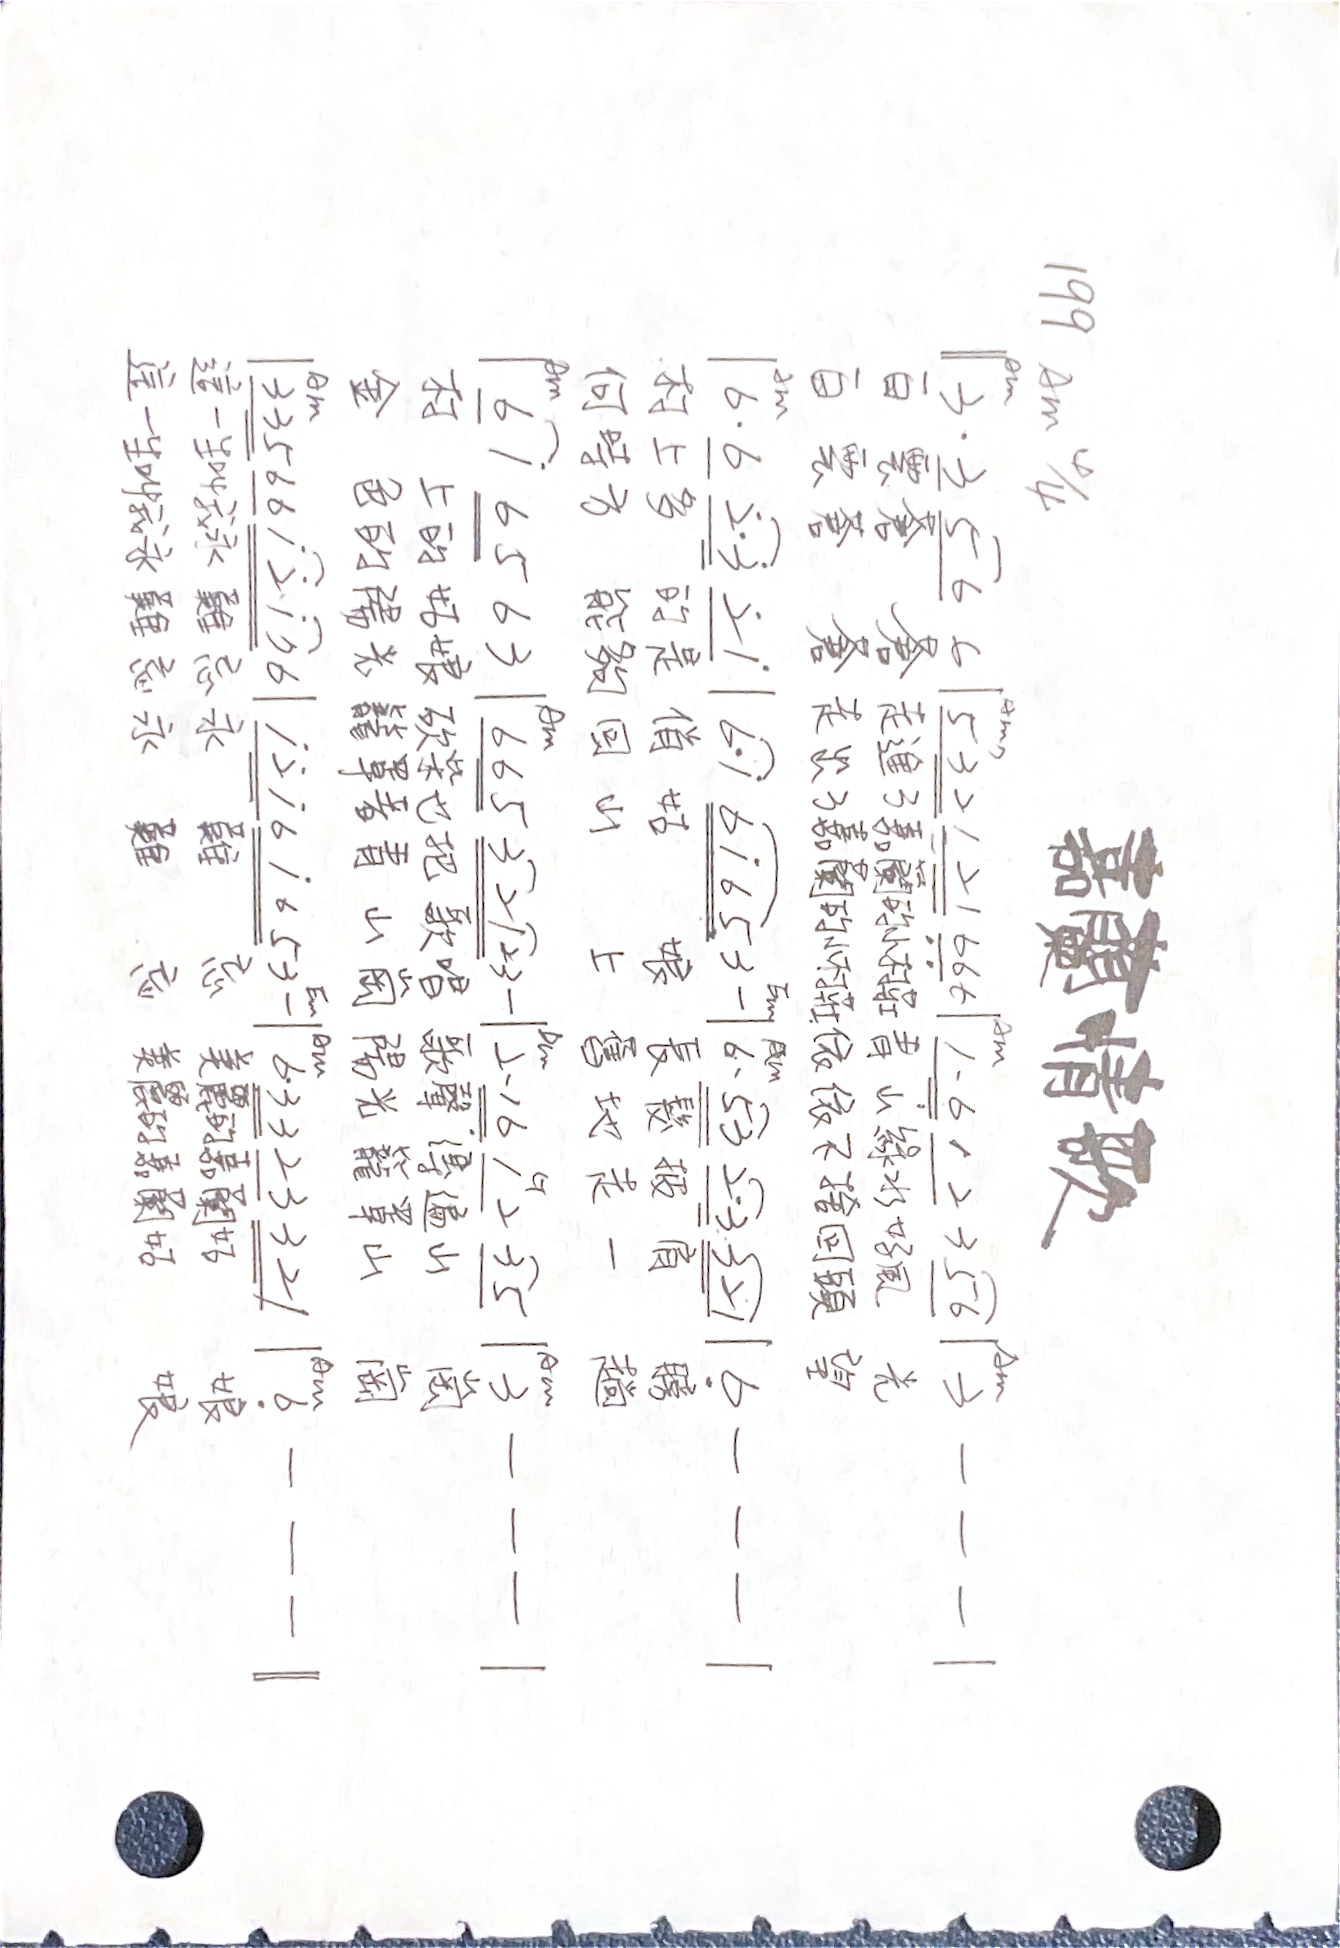 嘉蘭情歌
199 Am 4/4
Am Am7 Am Am
‖ 3 · 3 5 6 6 | 5 3 2 1 2 1 6 6 6 | 1 · 6 1 2 3 5 6 | 3 — — — |
白雲蒼蒼走進了嘉蘭的小村莊青山綠水好風光
白雲蒼蒼走出了嘉蘭的小村莊依依不捨回頭望
Am Em Am
| 6 · 6 2 · 3 2 1 | 6 · 1 6 1 6 5 3 — | 6 · 5 3 2 · 3 3 2 1 | 6 — — — |
村上多的是俏姑娘長髮披肩膀
何時方能夠回山上舊地走一趟
Am Am Dm G Am
| 6 1 6 5 6 3 | 6 6 5 3 2 1 2 3 — | 2 · 1 6 1 2 3 5 | 3 — — — |
村上的姑娘砍柴也把歌唱歌聲傳遍山崗
金色的陽光籠罩著青山崗陽光籠罩山崗
Am Em Am Am
| 3 3 5 6 6 1 2 · 1 7 6 | 1 2 1 6 1 6 5 3 — | 6 · 3 3 2 3 3 2 1 | 6 — — — ‖
這一生叫我永難忘永難忘美麗的嘉蘭姑娘
這一生叫我永難忘永難忘美麗的嘉蘭姑娘